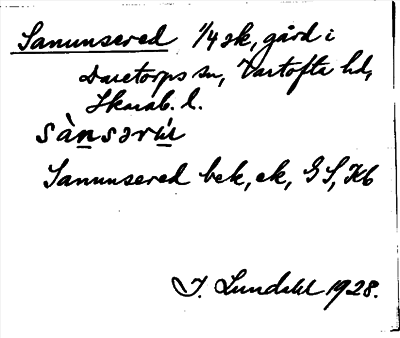 Sanunsered 1/4 sk, gård i
Daretorps sn, Vartofta hd,
Skarab. l.
sànsərùd
Sanunsered bek, ek, GS, Kb
I. Lundahl 1928.